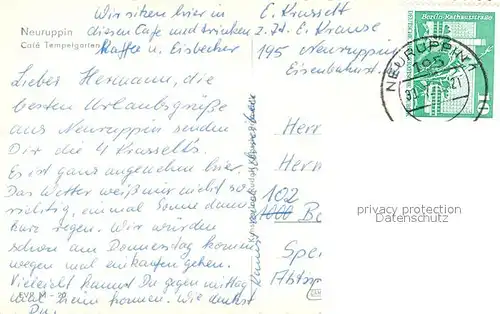 Neuruppin
Café Tempelgarten
Wir sitzen hier in
diesem Cafe und trinken
Kaffee u. Eisbecher
Lieber Hermann, die
besten Urlaubsgrüße
aus Neuruppin senden
Dir die 4 Krasselts.
Es ist ganz angenehm hier.
Das Wetter weiß nur nicht so
richtig, einmal Sonne dann
kurz regen. Wir würden
schon am Donnerstag kommen
wegen mal einkaufen gehen.
Vieleicht kannst Du gegen mittag
mal heim kommen. Wie denkst
Du
E. Krasselt
z. Zt. E. Krause
195 Neuruppin
Eisenbahnst.
Berlin, Rathausstraße
10
NEURUPPIN 1
195
Herr
Her
102
1000 Be
Spe
Abtsp
privacy protection
Oldthing.net
EVP M -,20